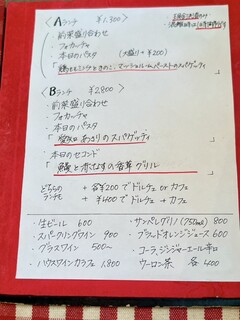 Aランチ ¥1,500
・前菜盛り合わせ
・フォカーチャ
・本日のパスタ (大盛り + ¥200)
スパゲッティ
Bランチ ¥2,800
・前菜盛り合わせ
・フォカーチャ
・本日のパスタ
あさりのスパゲッティ
・本日のセコンド
香草グリル
どちらの + 各¥200で ドルチェ or カフェ
ランチも + ¥400で ドルチェ + カフェ
・生ビール 600
・スパークリングワイン 900
・グラスワイン 500〜
・ハウスワインカラフェ 1,800
・サンペレグリノ (750ml) 800
・ブラッドオレンジジュース 600
・コーラ、ジンジャーエール辛口
・ウーロン茶 各 400